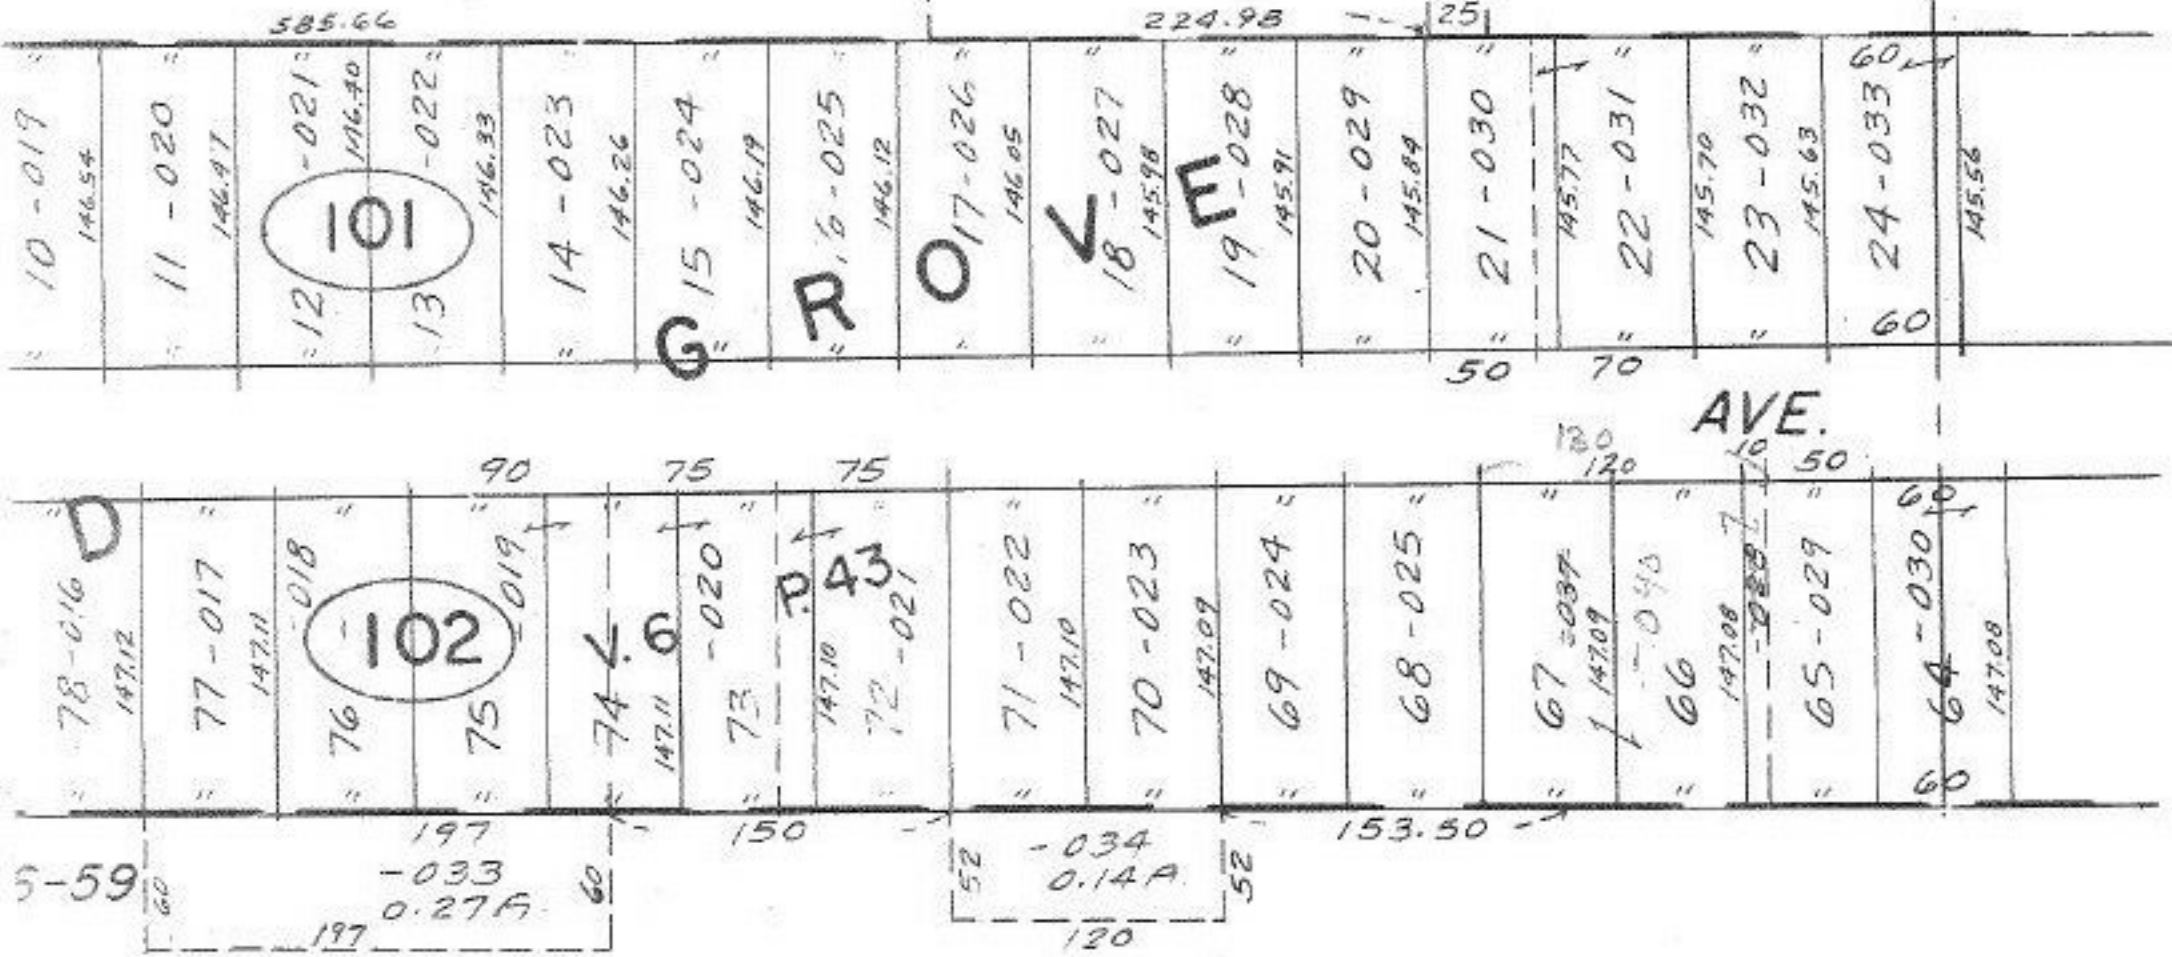 585.66 224.98 25
" " " " " " " " " " " " " 60
10-019 146.54 11-020 146.47 12-021 146.40 13-022 146.33 14-023 146.26 15-024 146.19 16-025 146.12 17-026 146.05 18-027 145.98 19-028 145.91 20-029 145.84 21-030 145.77 22-031 145.70 23-032 145.63 24-033 145.56
101
GROVE
" " " " " " " " " " " " " " 60
50 70
AVE.
130
90 75 75 120 10 50
" " " " " " " " " " " " 60
D
78-016 147.12 77-017 147.11 76-018 75-019 74 147.11 73-020 147.10 72-021 71-022 147.10 70-023 147.09 69-024 68-025 67-039 147.09 66-040 147.08 65-029 64-030 147.08
102
V. 6 P. 43
" " " " " " " " " " " " " 60
197 150 153.50
-033 -034
0.27A. 0.14A.
5-59 60 60 52 52
197 120